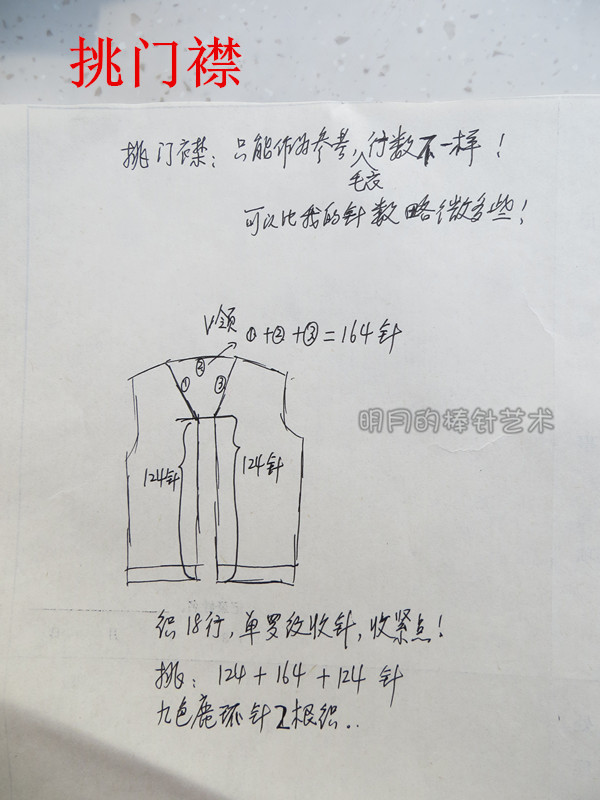 挑门襟
挑门衣襟:只能作为参考,行数不一样!
毛衣
可以比我的针数略微多些!
V领
①+②+③=164针
②
① ③
明月的棒针艺术
124针 124针
织18行,单罗纹收针,收紧点!
挑:124+164+124针
九色鹿环针2根织..